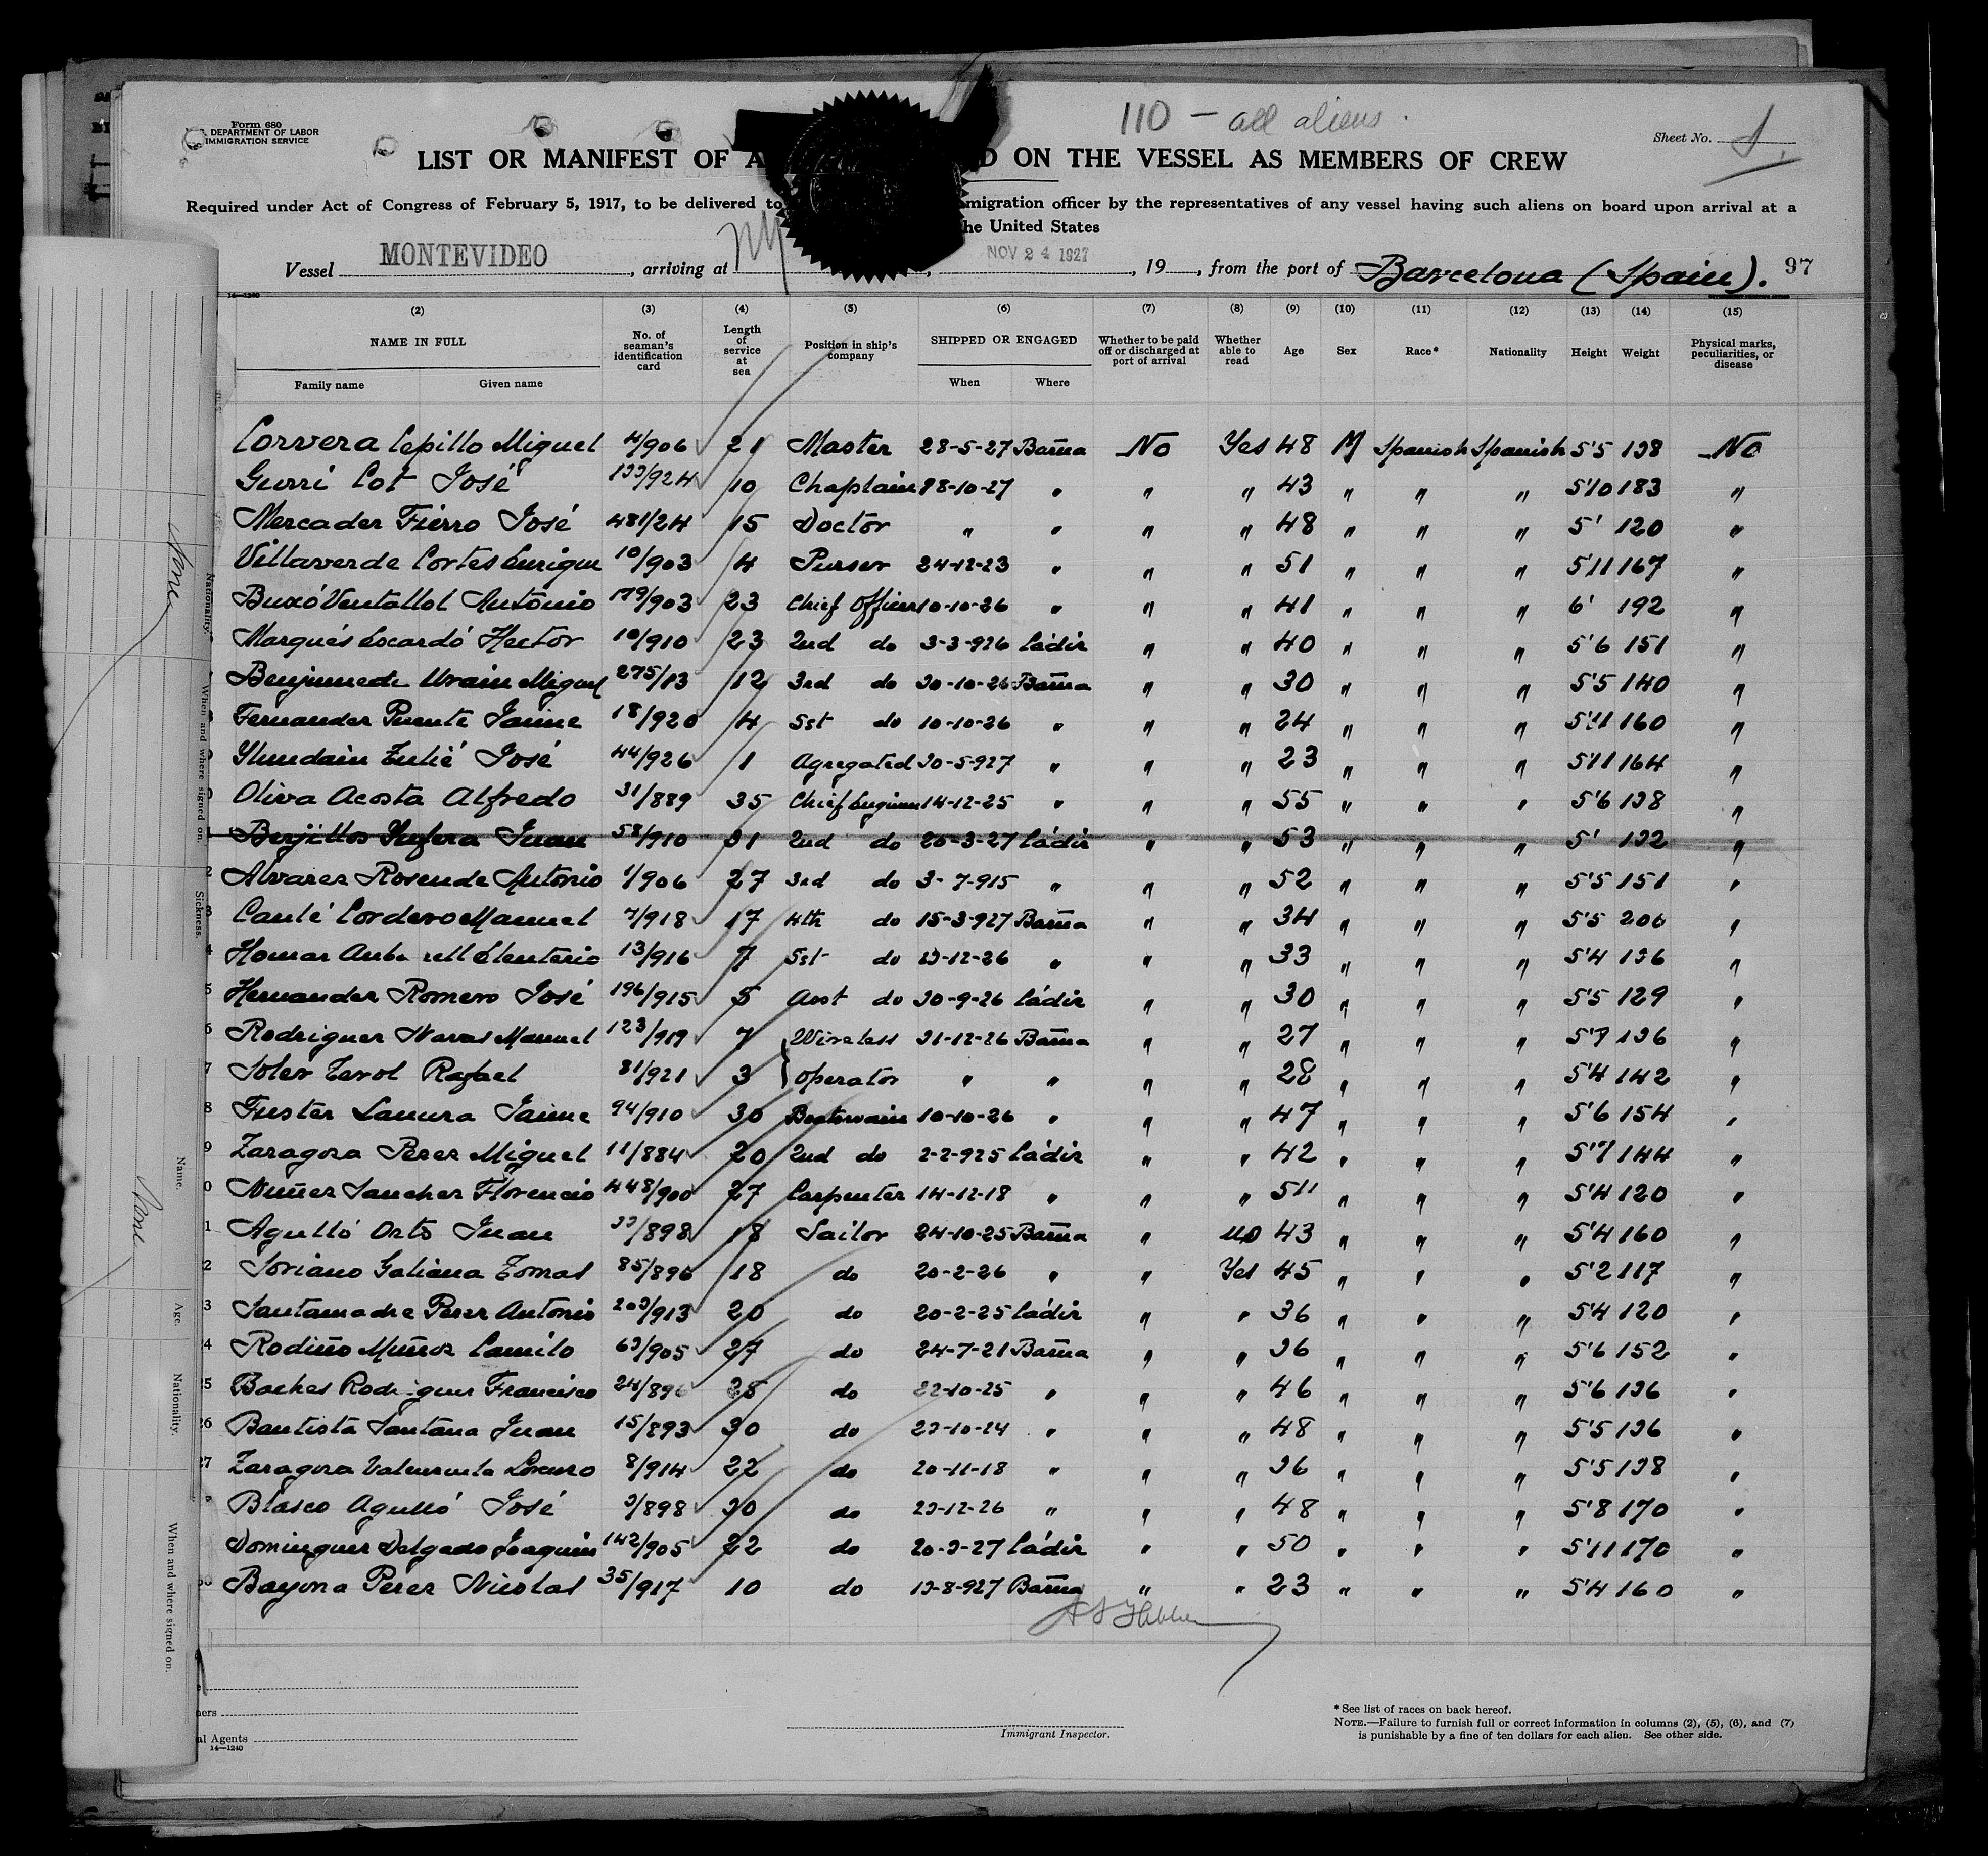 110 – all aliens.
Form 680
DEPARTMENT OF LABOR
IMMIGRATION SERVICE
Sheet No. 1
LIST OR MANIFEST OF A D ON THE VESSEL AS MEMBERS OF CREW
Required under Act of Congress of February 5, 1917, to be delivered to migration officer by the representatives of any vessel having such aliens on board upon arrival at a
he United States
Vessel MONTEVIDEO, arriving at NY, NOV 24 1927, 19 , from the port of Barcelona (Spain). 97
14—1240
(2) (3) (4) (5) (6) (7) (8) (9) (10) (11) (12) (13) (14) (15)
NAME IN FULL No. of seaman's identification card Length of service at sea Position in ship's company SHIPPED OR ENGAGED Whether to be paid off or discharged at port of arrival Whether able to read Age Sex Race* Nationality Height Weight Physical marks, peculiarities, or disease
Family name Given name When Where
Corvera Cepillo Miguel 4/906 21 Master 28-5-27 Barna No Yes 48 M Spanish Spanish 5'5 138 No
Gurri Cot José 133/924 10 Chaplain 28-10-27 " " " 43 " " " 5'10 183 "
Mercader Fierro José 481/24 15 Doctor " " " " 48 " " " 5' 120 "
Villaverde Cortes Enrique 10/903 4 Purser 24-12-23 " " " 51 " " " 5'11 167 "
Buxó Ventallol Antonio 179/903 23 Chief Officer 10-10-26 " " " 41 " " " 6' 192 "
Marqués Escardó Hector 10/910 23 2nd do 3-3-926 Cádiz " " 40 " " " 5'6 151 "
Miguel 275/13 12 3rd do 30-10-26 Barna " " 30 " " " 5'5 140 "
Fernandez Puente Jaime 18/920 4 Sst do 10-10-26 " " " 24 " " " 5'11 160 "
José 44/926 1 Agregated 30-5-927 " " " 23 " " " 5'11 164 "
Oliva Acosta Alfredo 31/889 35 Chief Engineer 14-12-25 " " " 55 " " " 5'6 138 "
Juan 58/910 31 2nd do 20-3-27 Cádiz " " 53 " " " 5' 132 "
Alvarez Rosende Antonio 1/906 27 3rd do 3-7-915 " " " 52 " " " 5'5 151 "
Canlé Cordero Manuel 7/918 17 4th do 15-3-927 Barna " " 34 " " " 5'5 200 "
Homar Eleuterio 13/916 7 5st do 23-12-26 " " " 33 " " " 5'4 136 "
Hernandez Romero José 196/915 5 Asst do 30-9-26 Cádiz " " 30 " " " 5'5 129 "
Rodriguez Navas Manuel 123/919 7 Wireless 31-12-26 Barna " " 27 " " " 5'7 136 "
Soler Terol Rafael 81/921 3 operator " " " " 28 " " " 5'4 142 "
Fuster Jaime 94/910 30 Boatswain 10-10-26 " " " 47 " " " 5'6 154 "
Zaragoza Perez Miguel 11/884 20 2nd do 2-2-925 Cádiz " " 42 " " " 5'7 144 "
Nuñez Sanchez Florencio 448/900 27 Carpenter 14-12-18 " " " 511 " " " 5'4 120 "
Agulló Orts Juan 33/898 18 Sailor 24-10-25 Barna " no 43 " " " 5'4 160 "
Soriano Galiana Tomas 85/896 18 do 20-2-26 " " Yes 45 " " " 5'2 117 "
Santamadre Perez Antonio 203/913 20 do 20-2-25 Cádiz " " 36 " " " 5'4 120 "
Rodiño Muñoz Camilo 63/905 27 do 24-7-21 Barna " " 36 " " " 5'6 152 "
Rodriguez Francisco 24/896 25 do 22-10-25 " " " 46 " " " 5'6 136 "
Bautista Santana Juan 15/893 30 do 23-10-24 " " " 48 " " " 5'5 136 "
Zaragoza Valenzuela Lorenzo 8/914 22 do 20-11-18 " " " 36 " " " 5'5 138 "
Blasco Agulló José 3/898 30 do 23-12-26 " " " 48 " " " 5'8 170 "
Dominguez Delgado Joaquin 142/905 22 do 20-3-27 Cádiz " " 50 " " " 5'11 170 "
Bayona Perez Nicolas 35/917 10 do 13-8-927 Barna " " 23 " " " 5'4 160 "
Immigrant Inspector.
al Agents
14—1240
* See list of races on back hereof.
NOTE.—Failure to furnish full or correct information in columns (2), (5), (6), and (7)
is punishable by a fine of ten dollars for each alien. See other side.
Nationality.
When and where signed on.
Sickness.
Name.
Age.
Nationality.
When and where signed on.
None
None